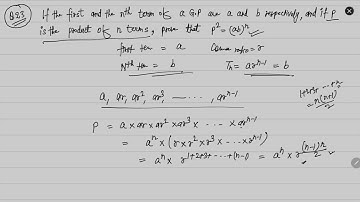 Q23 If the first and the nth term of a G.P are a and b respectively, and if P
is the product of n terms, prove that P² = (ab)ⁿ
first term = a Common ratio = r
Nth term = b Tn = arⁿ⁻¹ = b
a, ar, ar², ar³, - - - - , arⁿ⁻¹
1+2+3+ ... + n
= n(n+1)/2
P = a × ar × ar² × ar³ × ... × arⁿ⁻¹
= aⁿ × (r × r² × r³ × ... × rⁿ⁻¹)
= aⁿ × r^(1+2+3+...+(n-1)) = aⁿ × r^((n-1)n/2)